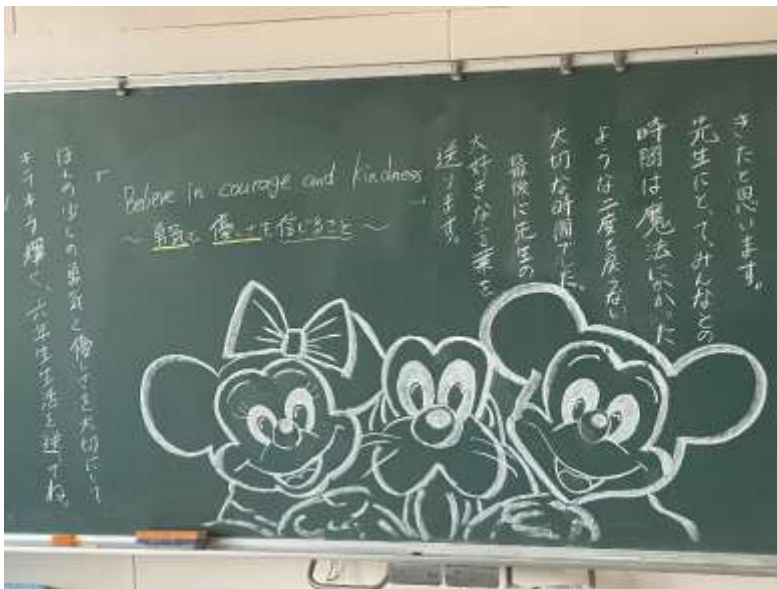 きたと思います。
先生にとって、みんなとの
時間は魔法にかかった
ような二度と戻らない
大切な時間でした。
最後に先生の
大好きな言葉を
送ります。
「Believe in courage and kindness」
〜勇気と優しさを信じること〜
ほんの少しの勇気と優しさを大切にして
キラキラ輝く、六年生生活を送ってね。